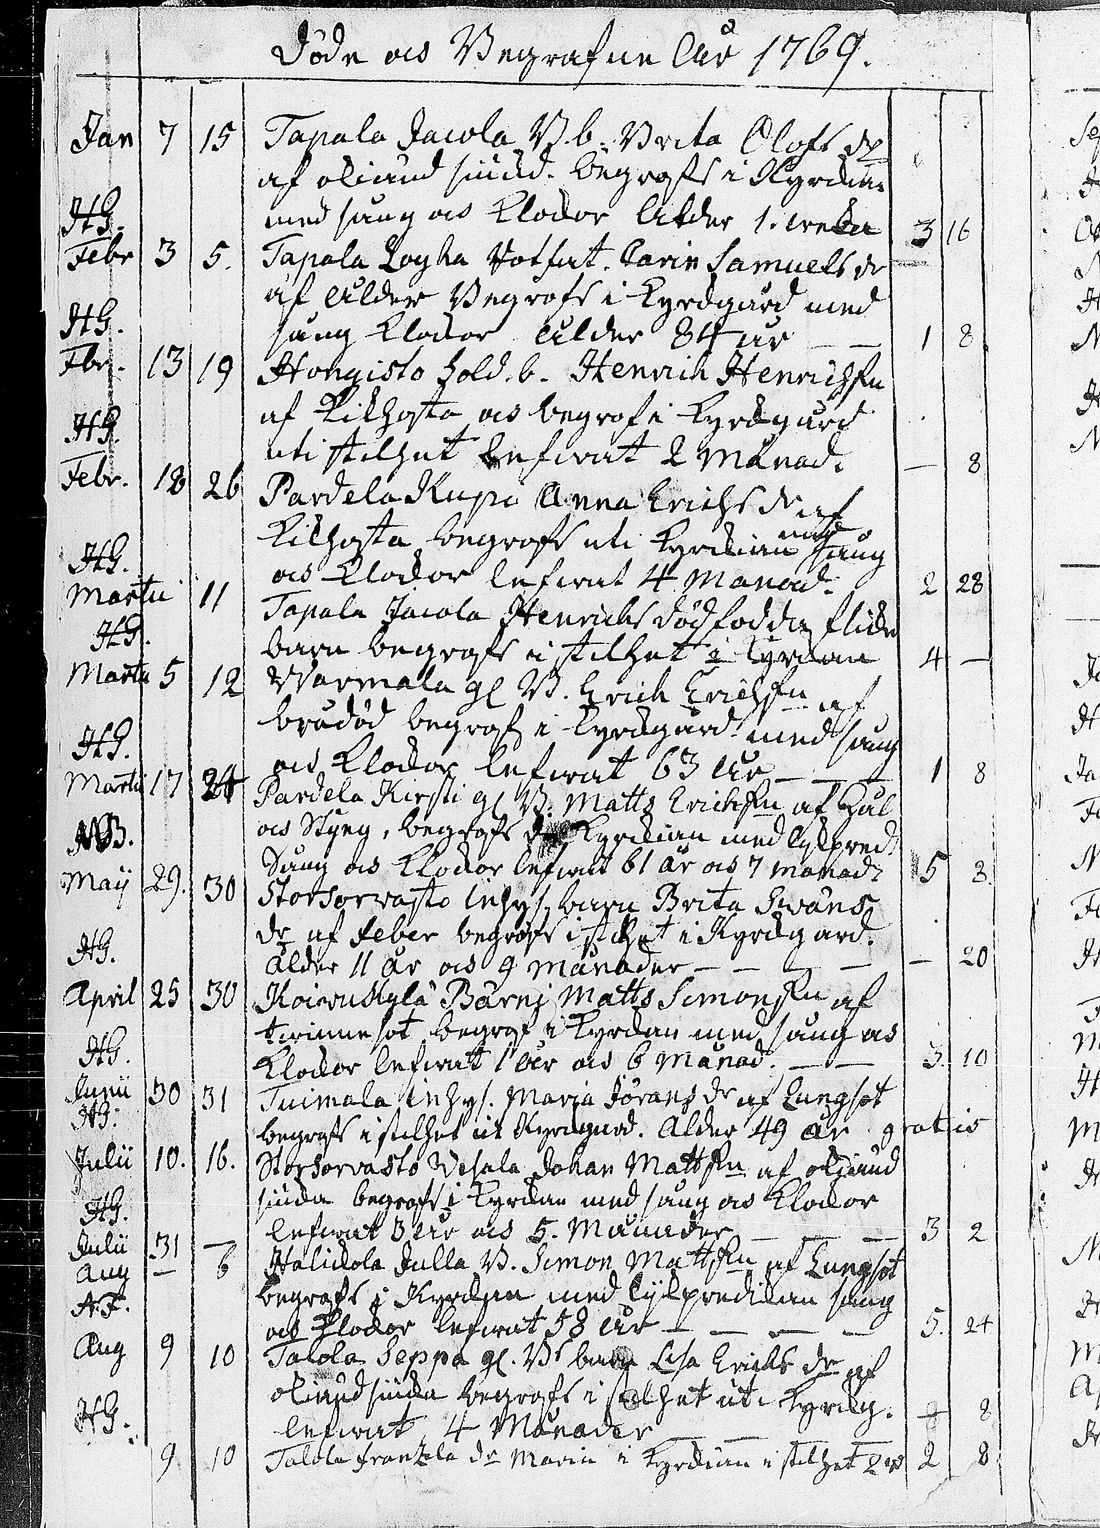 Döde och Begrafne Åhr 1769.
Jan 7 15 Tapala Jacola B. b. Brita Olofs dr
af okiend siukd. begrafs i Kyrckian
HG. med sång och Klockor ålder 1. wecka 3 16
Febr 3 5. Tapala Carin Samuels dr
af Ålder Begrofs i Kyrckgård med
HG. sång Klockor ålder 84 år — — 1 8
Fbr. 13 19 Hongisto Sold. b. Henrich Henrichsn
af Kikhosta och begrof i Kyrckgård
HG. uti stilhet lefwat 2 Månad. — 8
Febr. 18 26 Pardela Kupi Anna Erichs dr af
Kikhosta begrafs uti Kyrckian med sång
HG. och Klockor lefwat 4 Manad. 2 28
Martii 11 Tapala Jacola Henrichs dödfödda flicke
HG. barn begrafs i stilhet i Kyrckan 4 —
Martii 5 12 Warmala gl B. Erich Erichsn af
brådöd begrof i Kyrckgård med sång
HG. och Klockor lefwat 63 År — — 1 8
Martii 17 24 Pardela Kirsti gl B. Matts Erichsn af Håll
och Styng, begrafs i Kyrckian med lijkpred.
NB. Sång och Klockor lefwat 61 år och 7 månad 5 8
Maij 29. 30 Storsorwasto Inhys. barn Brita Swens
dr af feber begrofs i stilhet i Kyrckgård.
HG. Ålder 11 År och 9 månader — — — — 20
April 25 30 Matts Simonsn af
begrof i Kyrckan med sång och
HG. Klockor lefwat 1 år och 6 Månad. — — 3. 10
Junii 30 31 Tuimala inhys. Maria Jörans dr af Lungsot
HG. begrafs i stilhet ut Kyrckgård. Ålder 49 år gratis
Julii 10. 16. Storsorwasto Uksala Johan Mattsn af okiend
siuka begrofs i Kyrckan med sång och Klockor
HG. lefwat 3 År och 5. Månader — — — 3 2
Julii 31 — Halickola Julla B. Simon Mattsn af Lungsot
Aug — 6 begrofs i Kyrckan med lijkpredikan sång
A.F. och Klockor lefwat 58 år — — — — 5. 24
Aug 9 10 Talola Seppä gl. Bs barn Lisa Erichs dr af
okiend siuka begrofs i stilhet uti Kyrckg.
HG. lefwat 4 Månader — — — 8
9 10 Talola Frantzila dr Maria i Kyrckian i stilhet 2 2 8